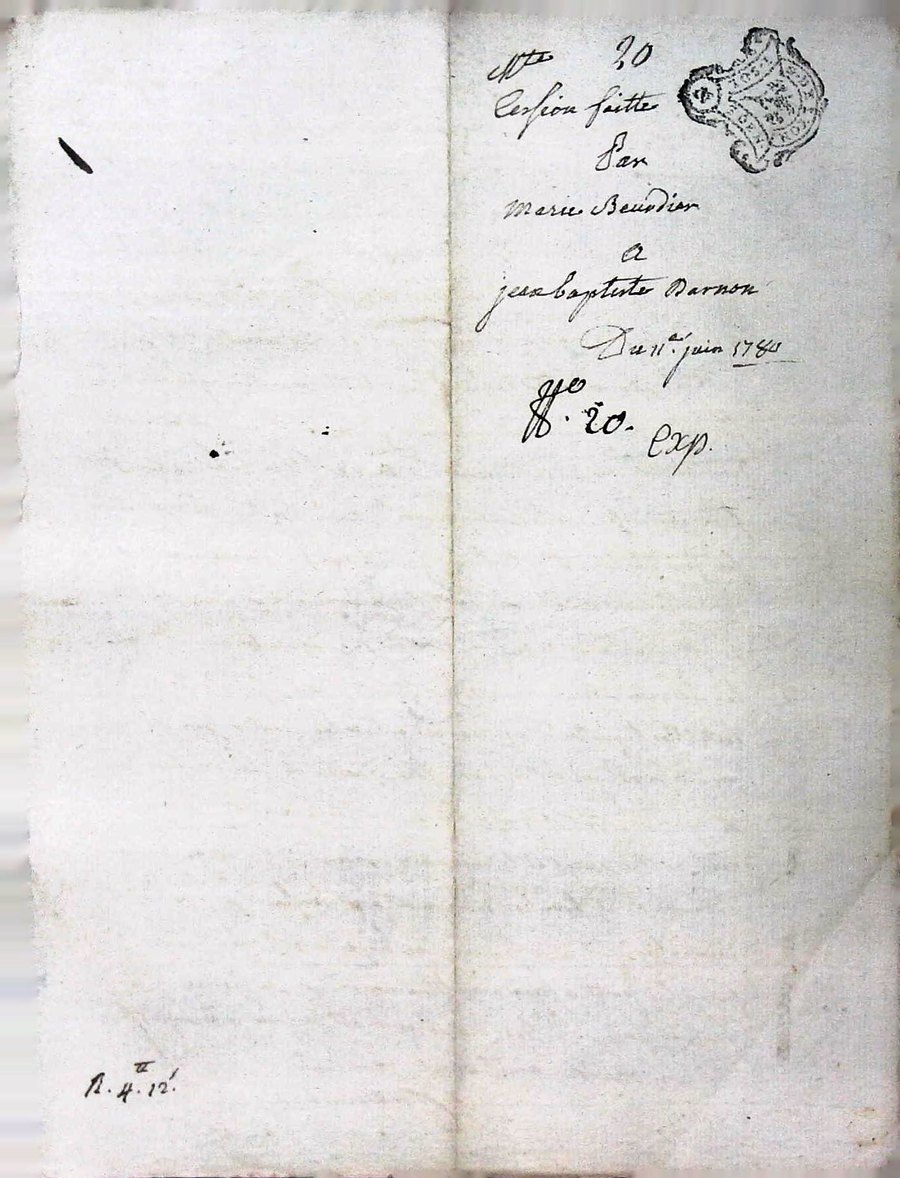 Mte 20
Cession faitte
Par
marie Beurdier
a
jean baptiste Darnon
Du 11e. juin 1780
No. 20.
exp.
R. 4.tt 12s.